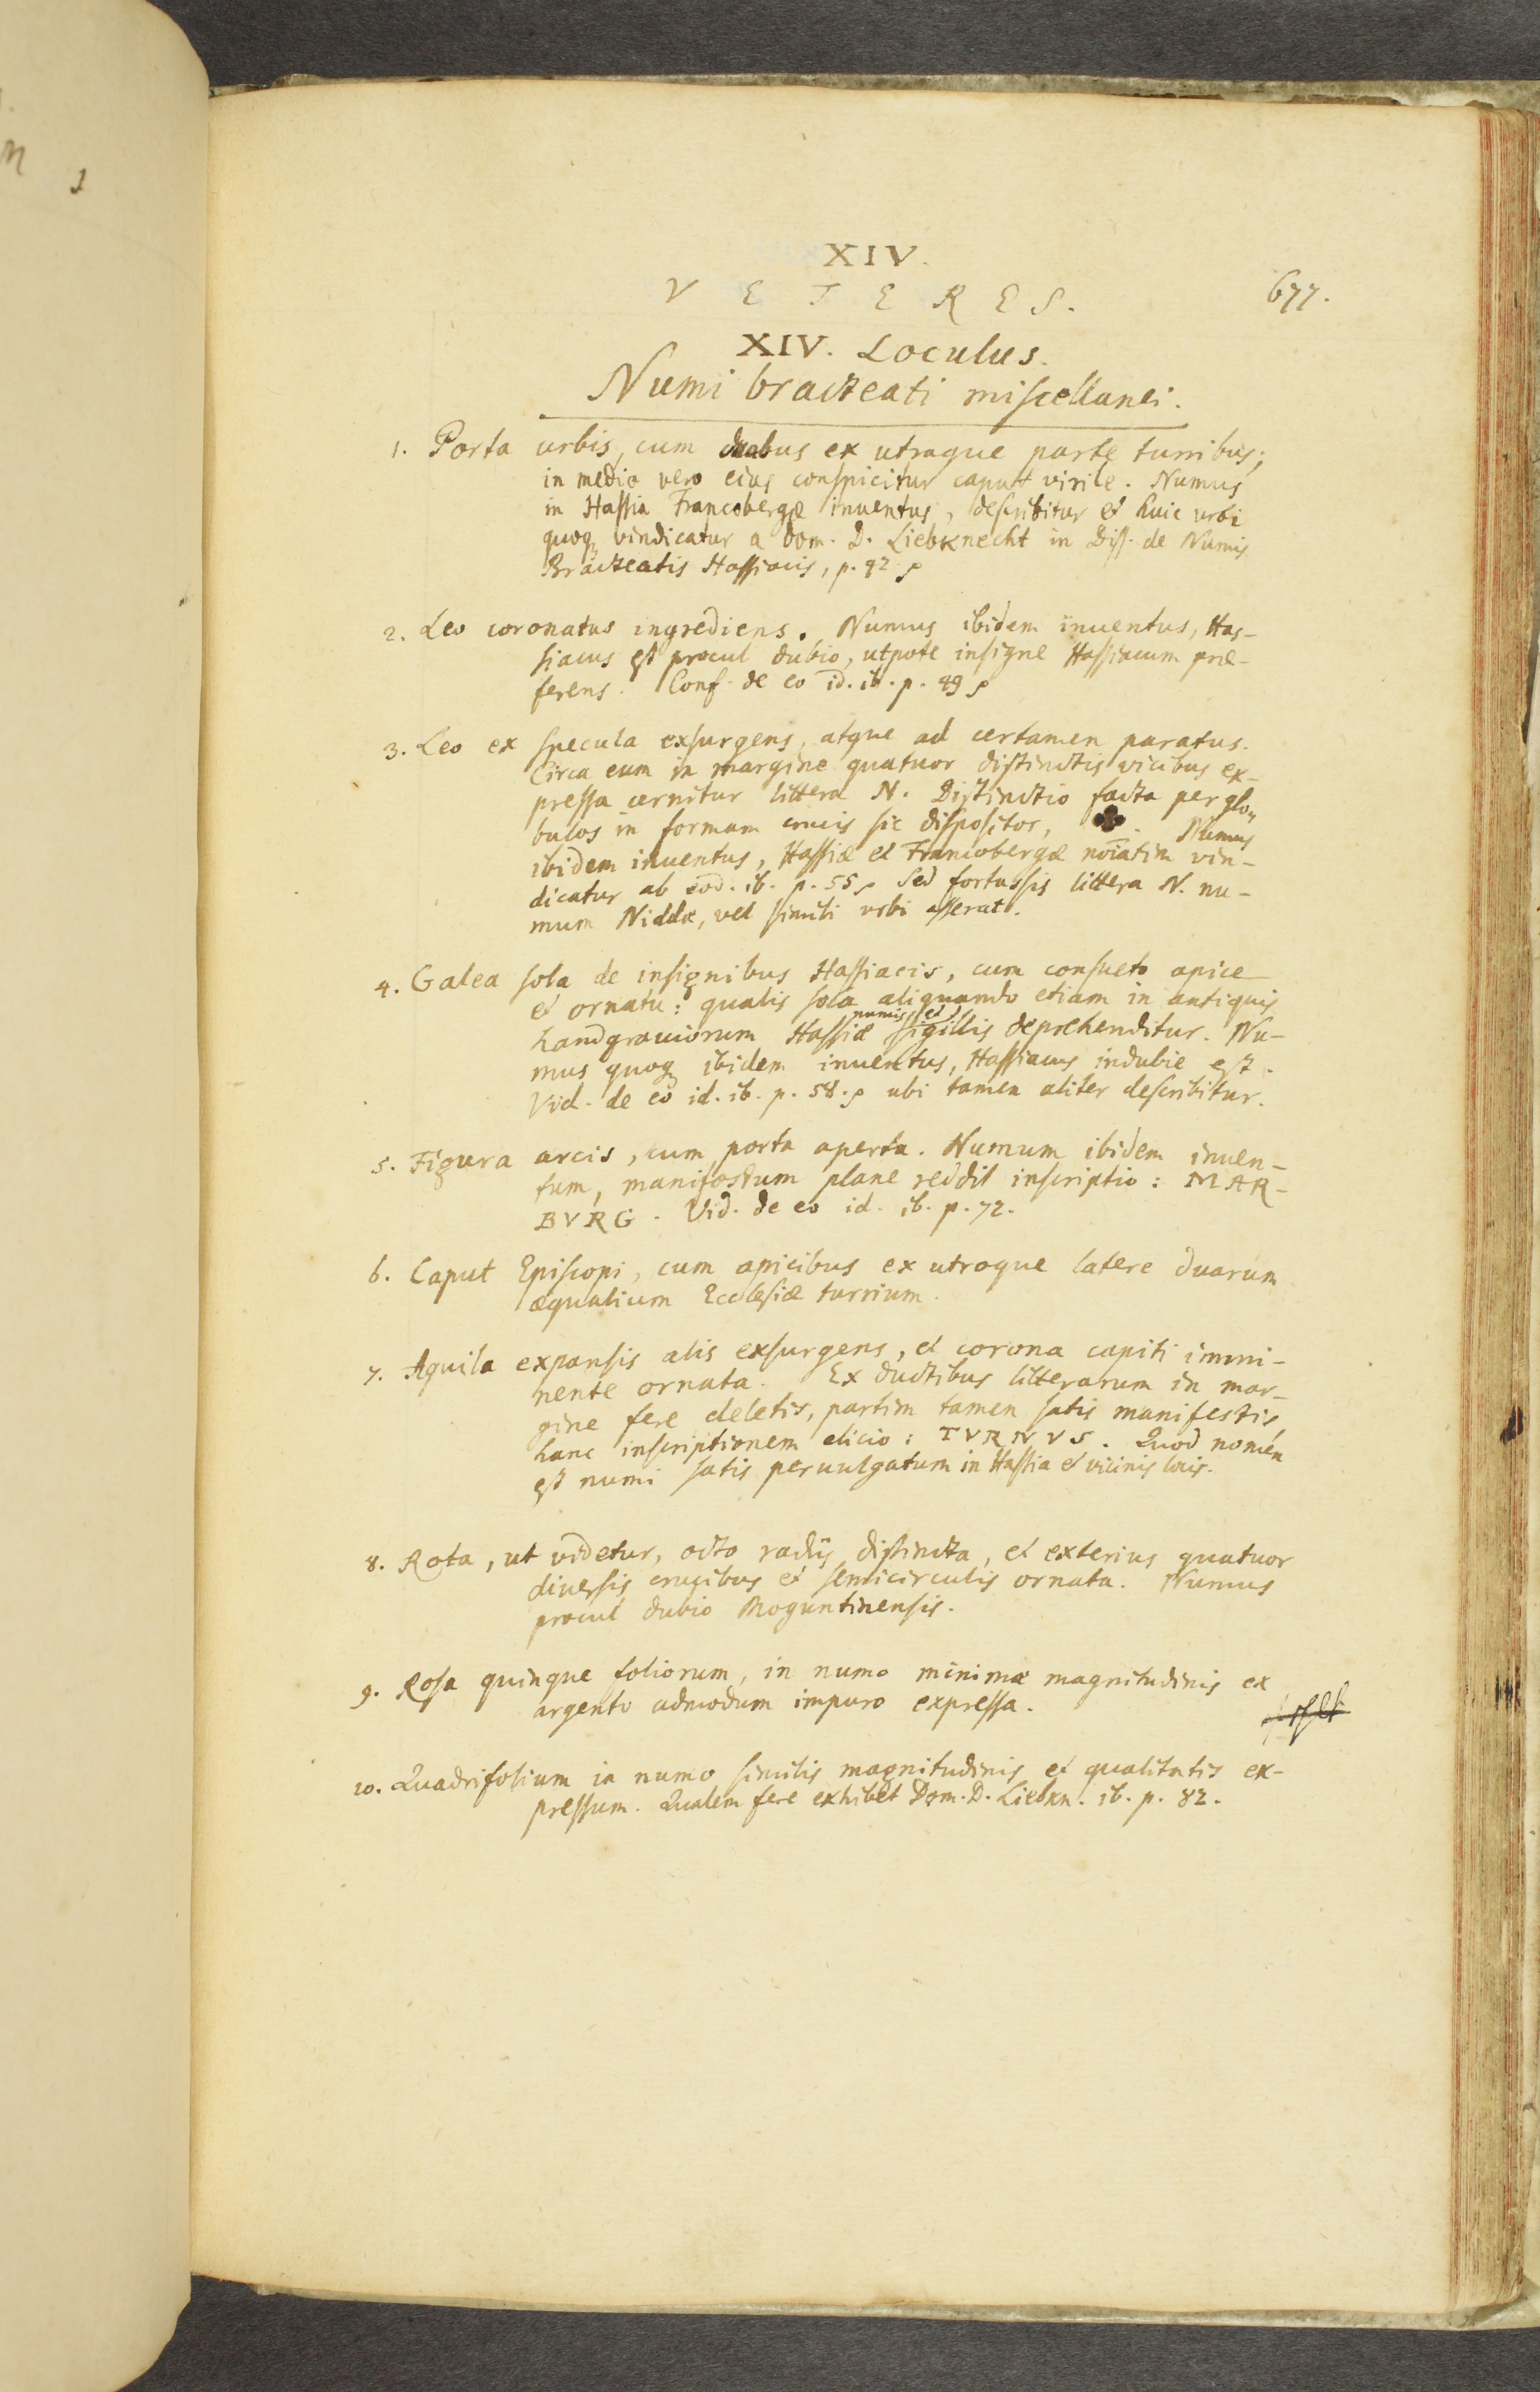 XIV.
VETERES. 677.
XIV. Loculus.
Numi bracteati miscellanei.
1. Porta urbis, cum duabus ex utraque parte turribus;
in medio vero eius conspicitur caput virile. Numus
in Hassia Francobergæ inventus, describitur et huic urbi
quoq vindicatur a Dom. D. Liebknecht in Diss. de Numis
Bracteatis Hassiacis, p. 42.
2. Leo coronatus ingrediens. Numus ibidem inventus, Has-
siacus est procul dubio, utpote insigne Hassiacum præ-
ferens. Conf. de eo id. ib. p. 49
3. Leo ex specula exsurgens, atque ad certamen paratus.
Circa eum in margine quatuor distinctis vicibus ex-
pressa cernitur littera N. Distinctio facta per glo-
bulos in formam crucis sic dispositos, ✤. Numus
ibidem inventus, Hassiæ et Francobergæ noiatim vin-
dicatur ab eod. ib. p. 55 Sed fortassis littera N. nu-
mum Niddæ, vel simili urbi asserat.
4. Galea sola de insignibus Hassiacis, cum consueto apice
et ornatu: qualis sola aliquando etiam in antiquis
numis, et
Landgraviorum Hassiæ sigillis deprehenditur. Nu-
mus quoq ibidem inventus, Hassiacus indubie est.
Vid. de eo id. ib. p. 58. ubi tamen aliter describitur.
5. Figura arcis, cum porta aperta. Numum ibidem inuen-
tum, manifestum plane reddit inscriptio: MAR-
BVRG. Vid. de eo id. ib. p. 72.
6. Caput Episcopi, cum apicibus ex utroque latere duarum
æqualium Ecclesiæ turrium.
7. Aquila expansis alis exsurgens, et corona capiti immi-
nente ornata. Ex ductibus litterarum in mar-
gine fere deletis, partim tamen satis manifestis
hanc inscriptionem elicio: TVRNVS. Quod nomen
est numi satis peruulgatum in Hassia et vicinis locis.
8. Rota, ut videtur, octo radiis distincta, et exterius quatuor
diversis crucibus et semicirculis ornata. Numus
procul dubio Moguntinensis.
9. Rosa quinque foliorum, in numo minimæ magnitudinis ex
argento admodum impuro expressa.
10. Quadrifolium in numo similis magnitudinis et qualitatis ex-
pressum. Qualem fere exhibet Dom. D. Liebkn. ib. p. 82.